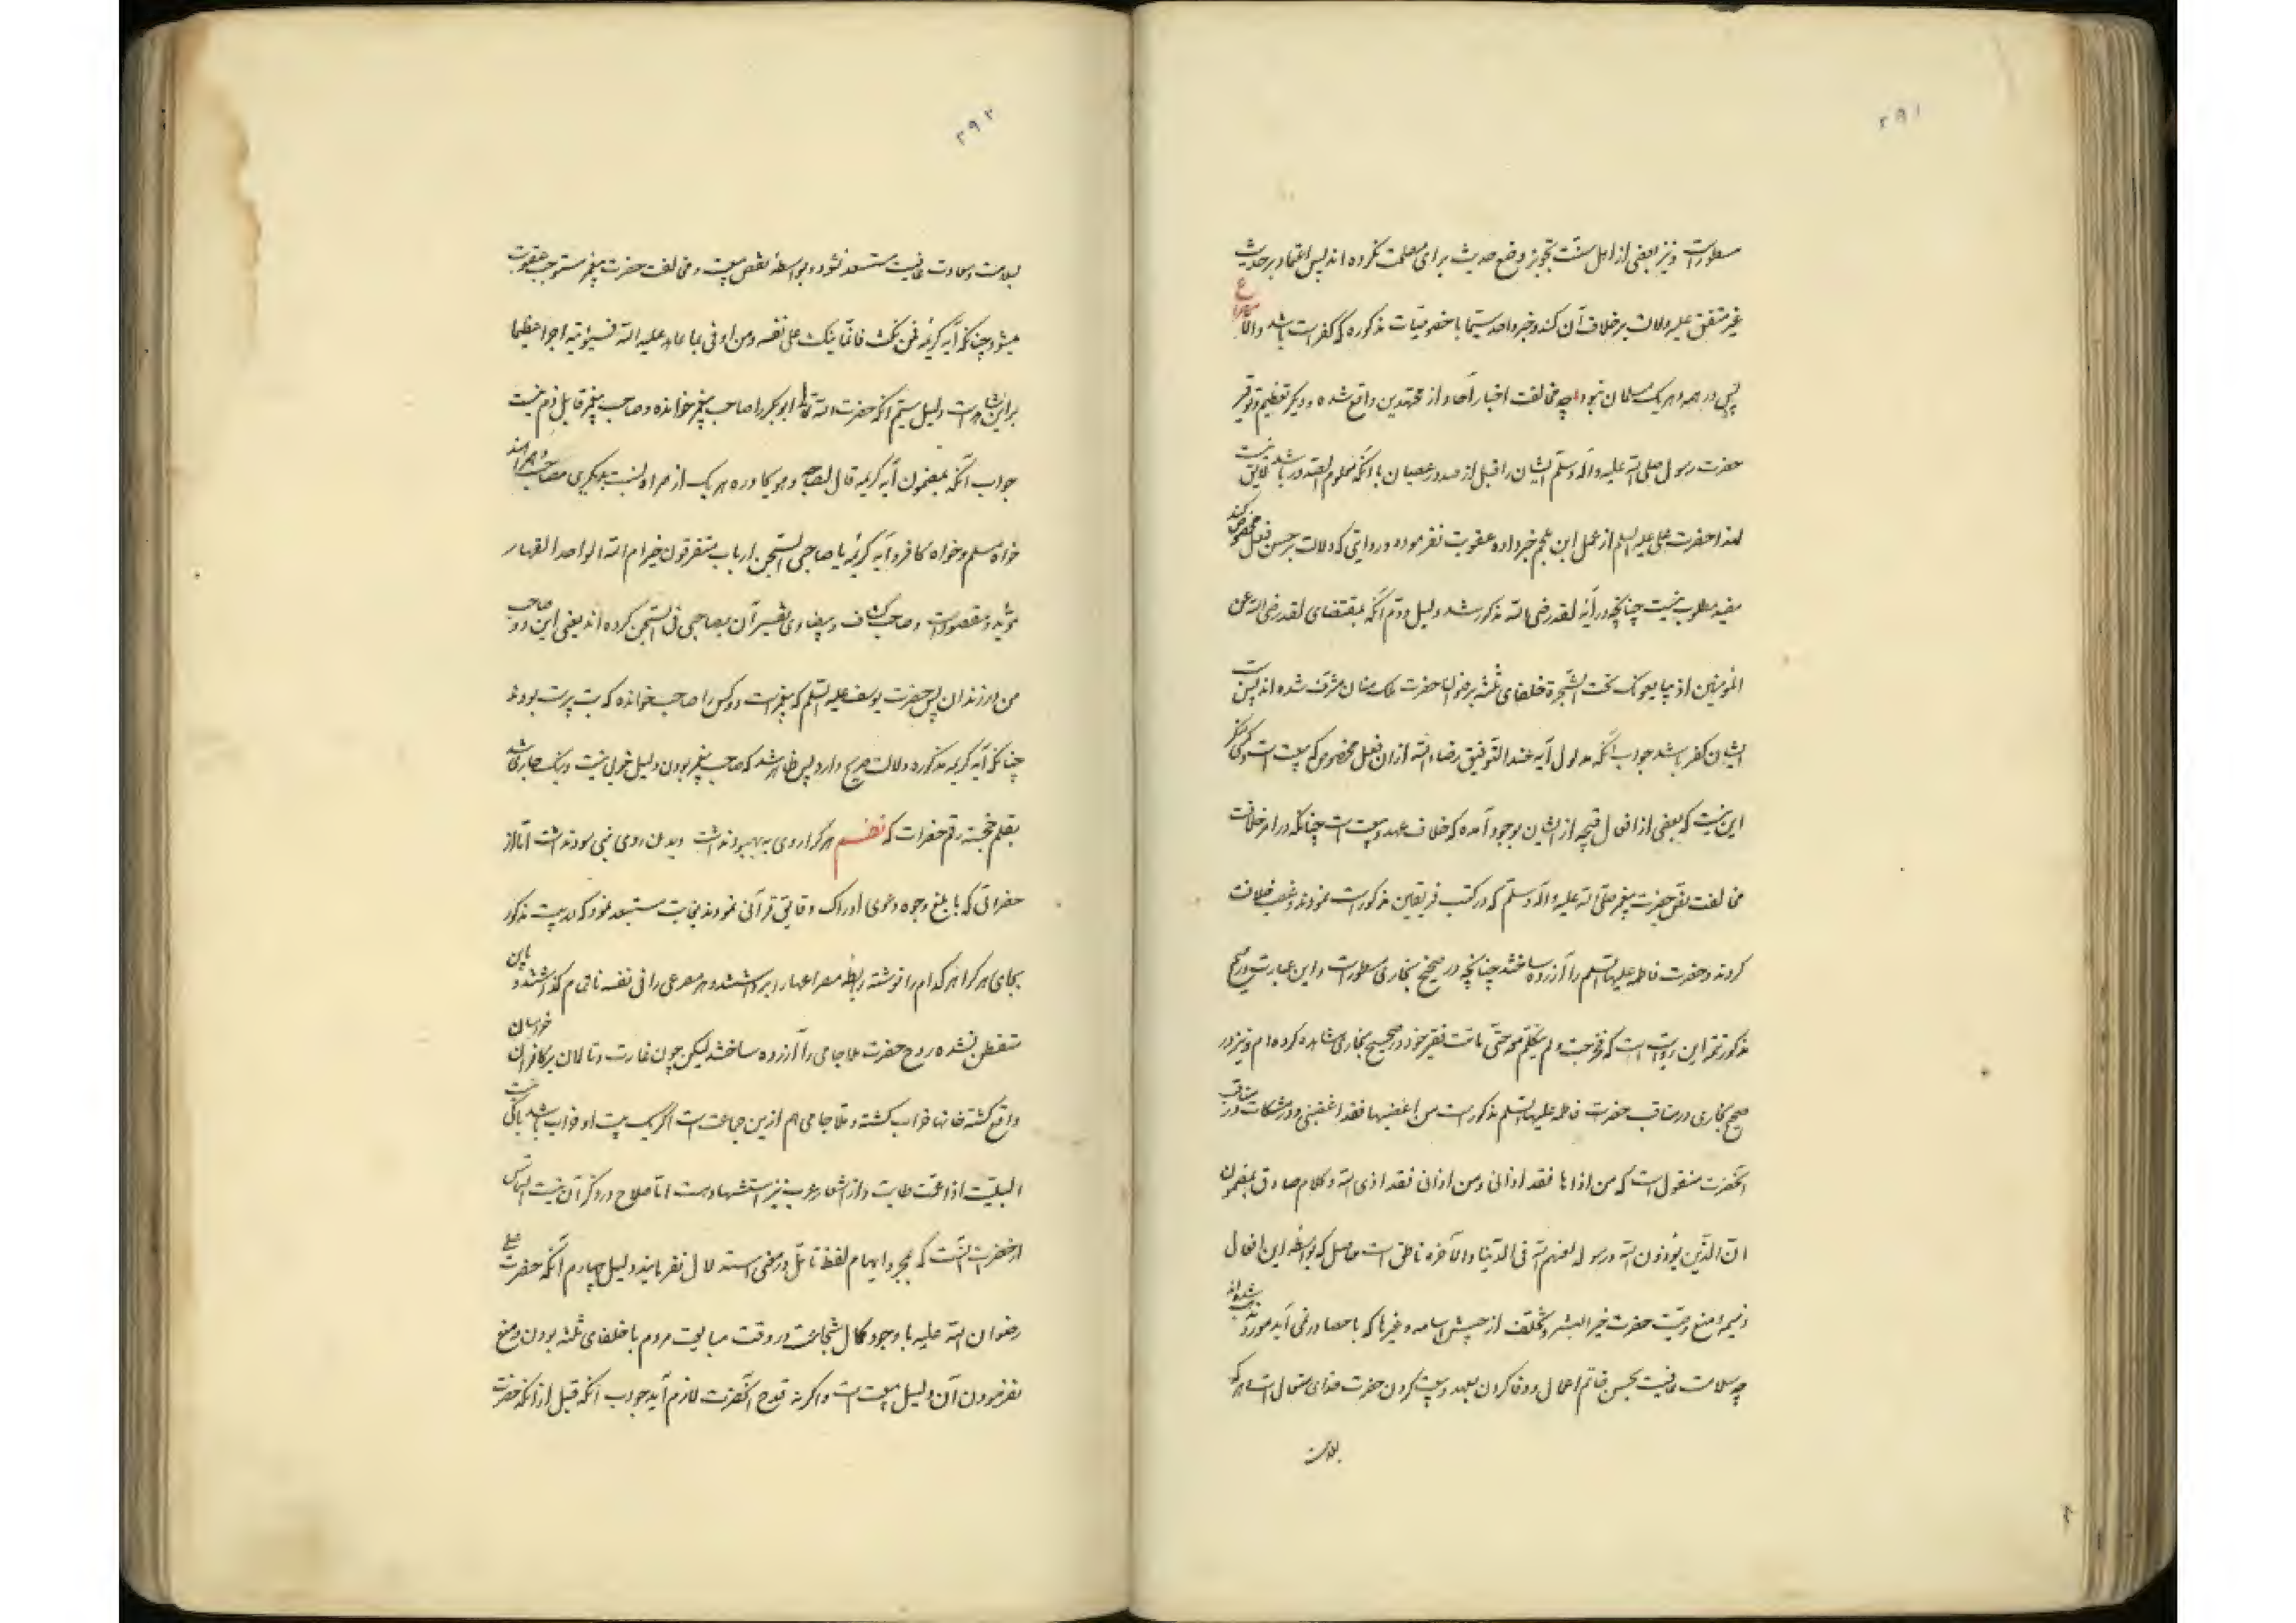 ۲۹۱
مسطورات و نیز بعضی از اهل سنت تجویز وضع حدیث برای مصلحت کرده اند پس اعتماد بر حدیث
غیر متفق علیه و دلالت بر خلاف آن کند و خبر واحد سیما با خصوصیات مذکوره که کفر است باشد والا
پس در همه و هر یک مسلمان نبود چه مخالفت اخبار آحاد از مجتهدین واقع شده و دیگر تعظیم و توقیر
حضرت رسول صلی الله علیه و آله وسلم ایشان را قبل از صدور عصیان با آنکه معلوم الصدور باشد لایق نیست
لهذا حضرت علی علیه السلم از عمل ابن ملجم خبر داده عقوبت نفرموده و روایتی که دلالت بر حسن فعل مخصوص کند
مفید مطلوب نیست چنانچه در آیه لقد رضی الله مذکور شد دلیل دوم آنکه بمقتضای لقد رضی الله عن
المؤمنین اذ یبایعونک تحت الشجرة خلفای ثلثه برضوان حضرت ملک منان مشرف شده اند پس سب
ایشان کفر باشد جواب آنکه مدلول آیه عند التوفیق رضاء الله از آن فعل مخصوص که بیعت است و کسی منکر
این نیست که بعضی از افعال قبیحه از ایشان بوجود آمده که خلاف عهد و بیعت است چنانکه در امر خلافت
مخالفت نص حضرت پیغمبر صلی الله علیه و آله وسلم که در کتب فریقین مذکورست نمودند و غصب خلافت
کردند و حضرت فاطمه علیها السلم را آزرده ساختند چنانچه در صحیح بخاری مسطورست و این عبارت در صحیح
مذکور تتمه این روایت است که فخرجت و لم یتکلم معه حتی ماتت فقیر خود در صحیح بخاری مشاهده کرده ام و نیز در
صحیح بخاری در مناقب حضرت فاطمه علیها السلم مذکورست من اغضبها فقد اغضبنی و در مشکات در مناقب
آنحضرت منقول است که من اذاها فقد اذانی و من اذانی فقد اذی الله و کلام صادق بمضمون
ان الذین یؤذون الله و رسوله لعنهم الله فی الدنیا والآخره ناطق است حاصل که بواسطه این افعال
ذمیمه و منع وصیت حضرت خیر البشر و تخلف از جیش اسامه و غیرها که باحصا در نمی آید مورد مذمت شده اند
چه سلامت عاقبت بحسن خاتم اعمال و وفا کردن بعهد و بیعت کردن حضرت خدای متعال است هر که
بسلامت
۲۹۲
بسلامت و سعادت عاقبت مستسعد نشود و بواسطه نقض بیعت و مخالفت حضرت پیغمبر مستوجب عقوبت
میشود چنانکه آیه کریمه فمن نکث فانما ینکث علی نفسه و من اوفی بما عاهد علیه الله فسیؤتیه اجرا عظیما
بر این شاهدست دلیل سیم آنکه حضرت الله تعالی ابوبکر را صاحب پیغمبر خوانده و صاحب پیغمبر قابل ذم نیست
جواب آنکه بمضمون آیه کریمه قال لصاحبه و هو یحاوره هر یک از مراد بنسبت بدیگری مصاحب اند
خواه مسلم و خواه کافر و آیه کریمه یا صاحبی السجن ارباب متفرقون خیر ام الله الواحد القهار
مؤید مقصودست و صاحب کشاف و بیضاوی تفسیر آن بصاحبی فی السجن کرده اند یعنی این دو صاحب
من در زندان پس حضرت یوسف علیه السلم که پیغمبرست دو کس را صاحب خوانده که بت پرست بودند
چنانکه آیه کریمه مذکوره دلالت صریح دارد پس ظاهر شد که صاحب پیغمبر بودن دلیل خوبی نیست و بیک جاری شد
بقلم خجسته رقم حضرات که نظم هر کرا روی به بهبود نداشت دیدن روی نبی سود نداشت اما از
حضراتی که بابلغ وجوه دعوی ادراک دقایق قرآنی نمودند بغایت مستبعد نمود که در بیت مذکور
بجای هر کرا هر کدام را نوشته ربط مصراعها را برداشتند و هر مصرعی را فی نفسه ناتمام گذاشتند و باین
متفطن نشده روح حضرت ملا جامی را آزرده ساختند لیکن چون غارت و تالان بر کافران خراسان
واقع گشته خانها خراب گشته و ملا جامی هم ازین جماعت است اگر یک بیت او خراب باشد باکی نیست
البلیة اذا عمت طابت و از اشعار عرب نیز استشهاد هست اما صلاح در ذکر آن نیست التماس
از حضرت آنست که بمجرد ابهام لفظ تأمل در معنی استدلال نفرمایند دلیل چهارم آنکه حضرت علی
رضوان الله علیه با وجود کمال شجاعت در وقت مبایعت مردم با خلفای ثلثه بودن و منع
نفرمودن آن دلیل بیعت است و اگر نه قدح آنحضرت لازم آید جواب آنکه قبل از آنکه حضرت